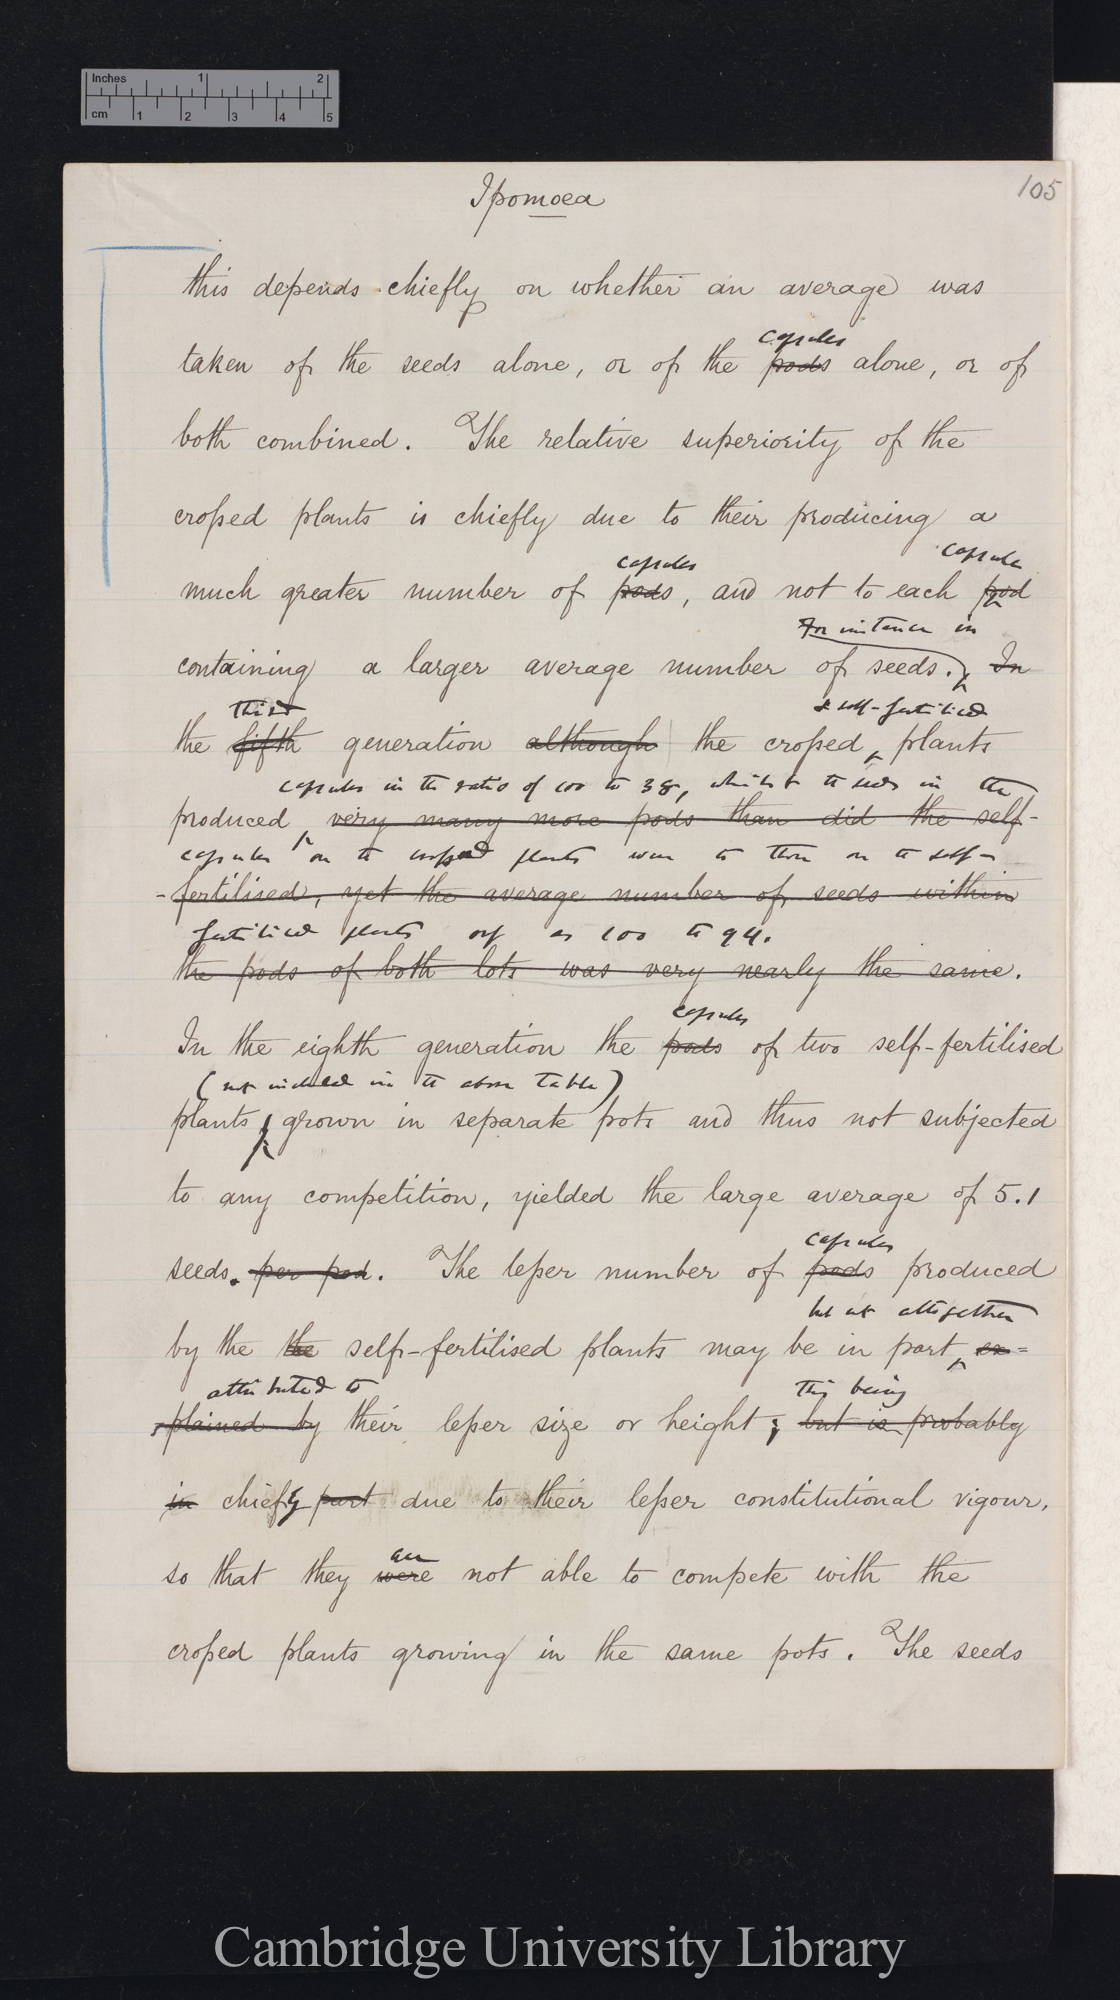 Inches 1 2
cm 1 2 3 4 5
Ipomoea
105
this depends chiefly on whether an average was
capsules
taken of the seeds alone, or of the pods alone, or of
both combined. The relative superiority of the
crossed plants is chiefly due to their producing a
capsules capsule
much greater number of pods, and not to each pod
For instance in
containing a larger average number of seeds. In
third & self-fertilised
the fifth generation although the crossed plants
capsules in the ratio of 100 to 38, whilst the seeds in the
produced very many more pods than did the self-
capsules on the crossed plants were to those on the self-
-fertilised, yet the average number of seeds within
fertilised plants only as 100 to 94.
the pods of both lots was very nearly the same.
capsules
In the eighth generation the pods of two self-fertilised
(not included in the above table)
plants, grown in separate pots and thus not subjected
to any competition, yielded the large average of 5.1
capsules
seeds. per pod. The lesser number of pods produced
but not altogether
by the the self-fertilised plants may be in part ex=
attributed to this being
plained by their lesser size or height; but is probably
in chiefly part due to their lesser constitutional vigour,
are
so that they were not able to compete with the
crossed plants growing in the same pots. The seeds
Cambridge University Library